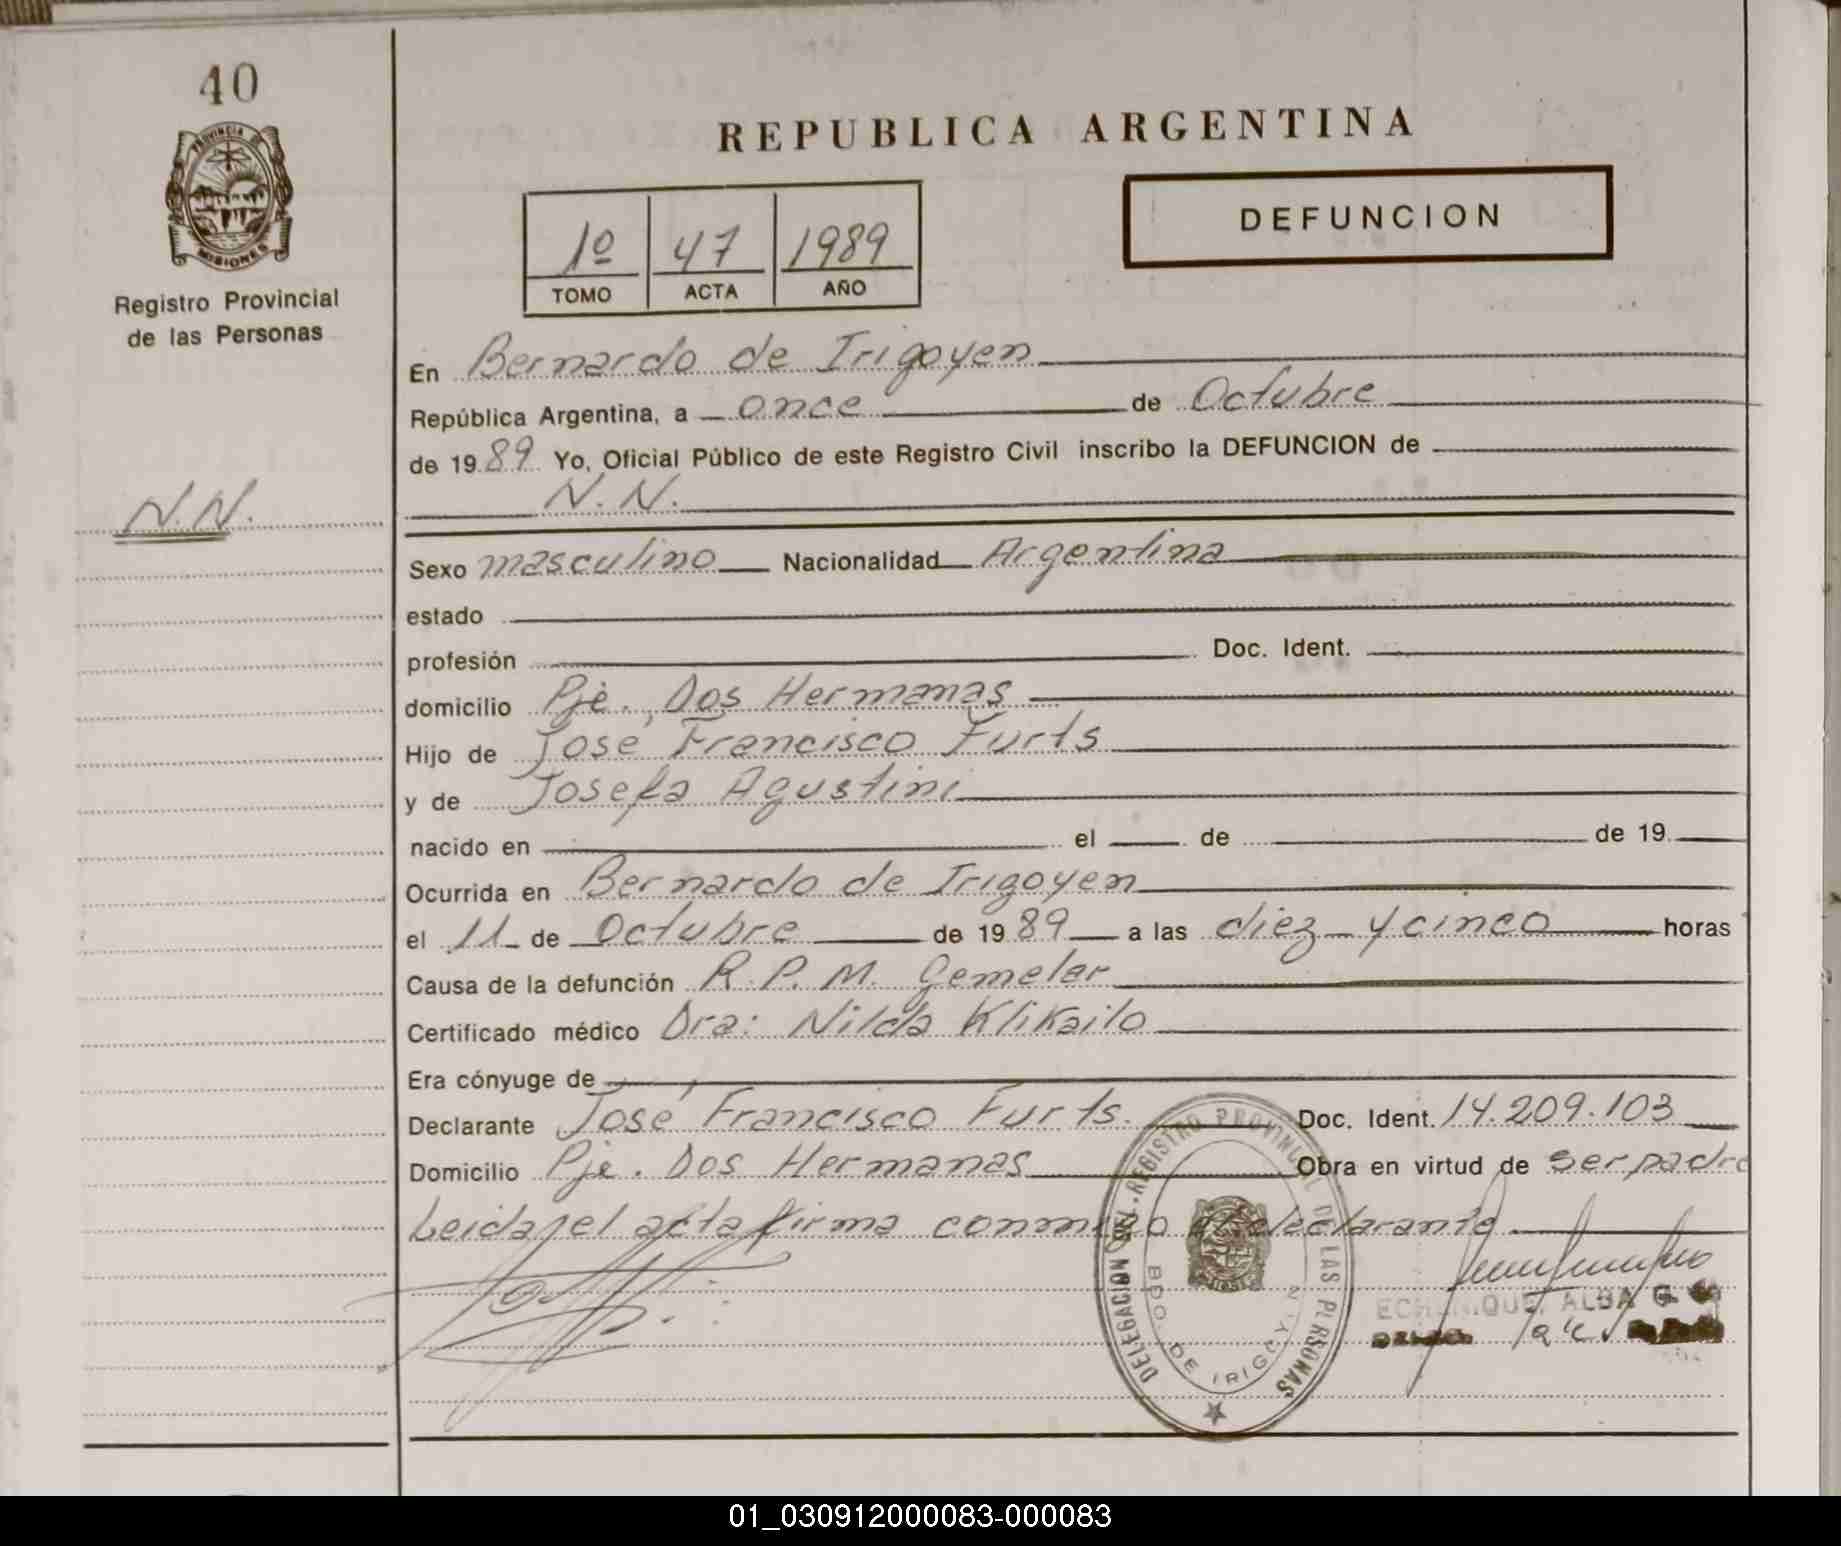 40
PROVINCIA
MISIONES
Registro Provincial
de las Personas
N.N.
REPUBLICA ARGENTINA
DEFUNCION
1º 47 1989
TOMO ACTA AÑO
En Bernardo de Irigoyen
República Argentina, a once de Octubre
de 1989 Yo, Oficial Público de este Registro Civil inscribo la DEFUNCION de
N.N.
Sexo masculino Nacionalidad Argentina
estado
profesión Doc. Ident.
domicilio Pje. Dos Hermanas
Hijo de José Francisco Furts
y de Josefa Agustini
nacido en el de de 19
Ocurrida en Bernardo de Irigoyen
el 11 de Octubre de 1989 a las diez y cinco horas
Causa de la defunción R.P.M. Gemelar
Certificado médico Dra: Nilda Klikailo
Era cónyuge de
Declarante José Francisco Furts. Doc. Ident. 14.209.103
Domicilio Pje. Dos Hermanas Obra en virtud de ser padre
Leida el acta firma conmigo el declarante
DELEGACION DEL REGISTRO PROVINCIAL DE LAS PERSONAS
BDO. DE IRIGOYEN
ALBA
01_030912000083-000083